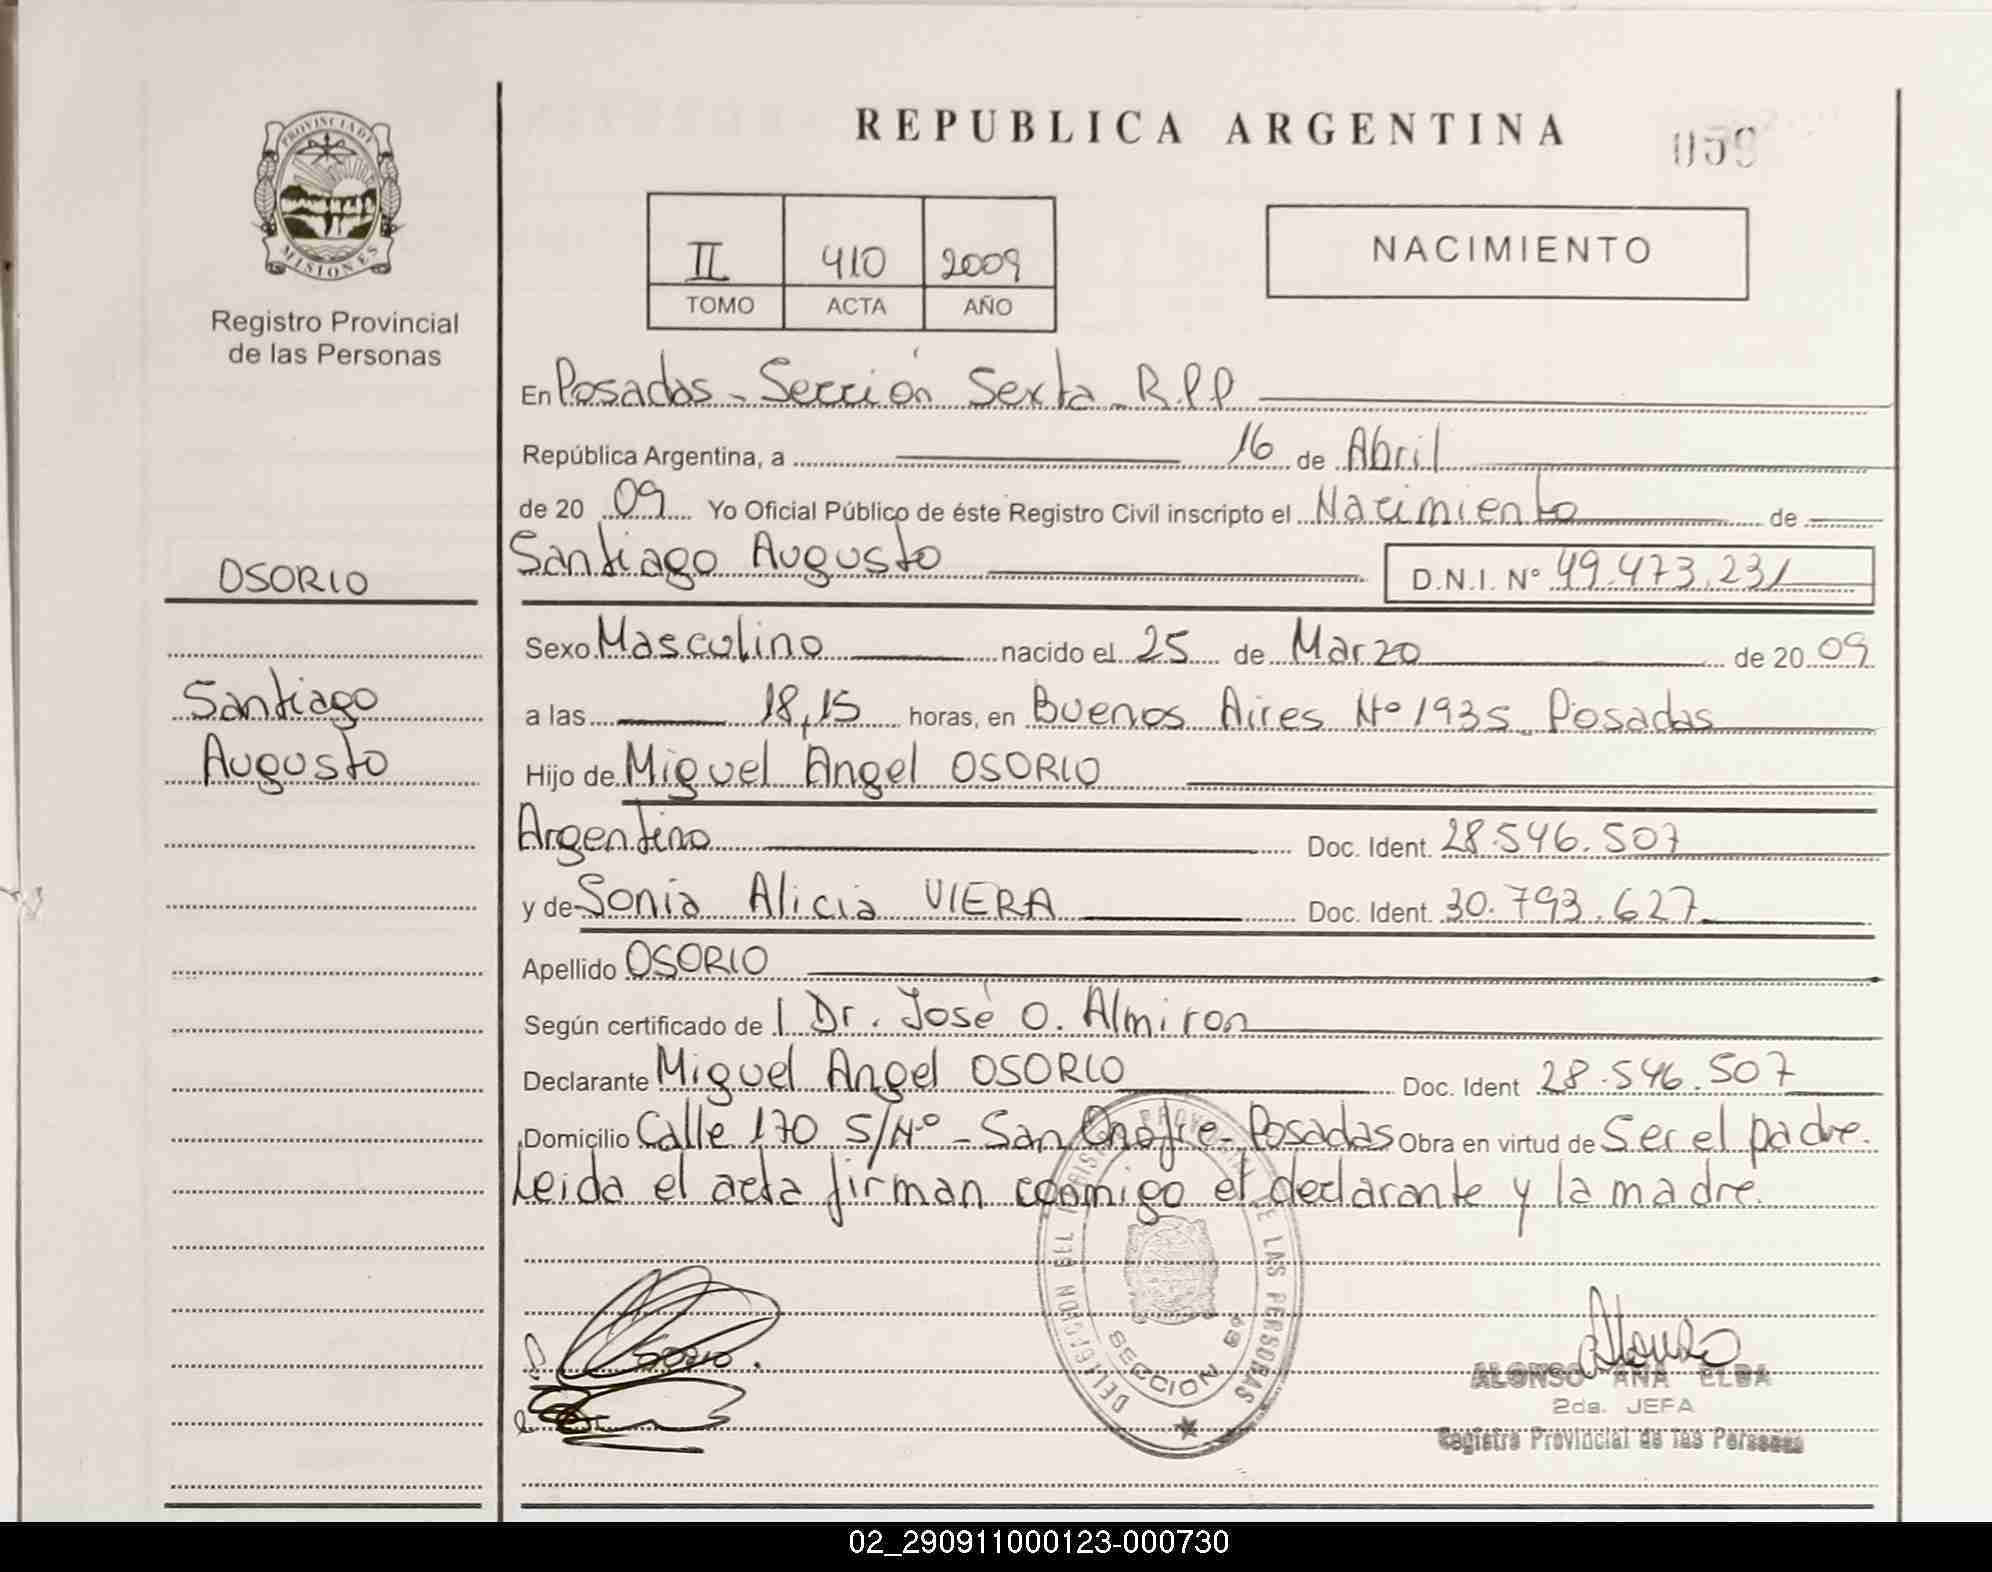 REPUBLICA ARGENTINA
059
PROVINCIA DE
MISIONES
Registro Provincial
de las Personas
II 410 2009
TOMO ACTA AÑO
NACIMIENTO
En Posadas - Sección Sexta - R.P.P
República Argentina, a 16 de Abril
de 20 09 Yo Oficial Público de éste Registro Civil inscripto el Nacimiento de
OSORIO
Santiago Augusto D.N.I. Nº 49.473.231
Sexo Masculino nacido el 25 de Marzo de 20 09
Santiago
Augusto
a las 18,15 horas, en Buenos Aires Nº 1935 - Posadas
Hijo de Miguel Angel OSORIO
Argentino Doc. Ident. 28.546.507
y de Sonia Alicia VIERA Doc. Ident. 30.793.627
Apellido OSORIO
Según certificado de Dr. José O. Almiron
Declarante Miguel Angel OSORIO Doc. Ident 28.546.507
Domicilio Calle 170 S/Nº - San Onofre - Posadas Obra en virtud de Ser el padre.
Leida el acta firman conmigo el declarante y la madre.
DELEGACION DEL REGISTRO PROVINCIAL DE LAS PERSONAS
SECCION 6ª
ALONSO ANA ELBA
2da. JEFA
Registro Provincial de las Personas
02_290911000123-000730